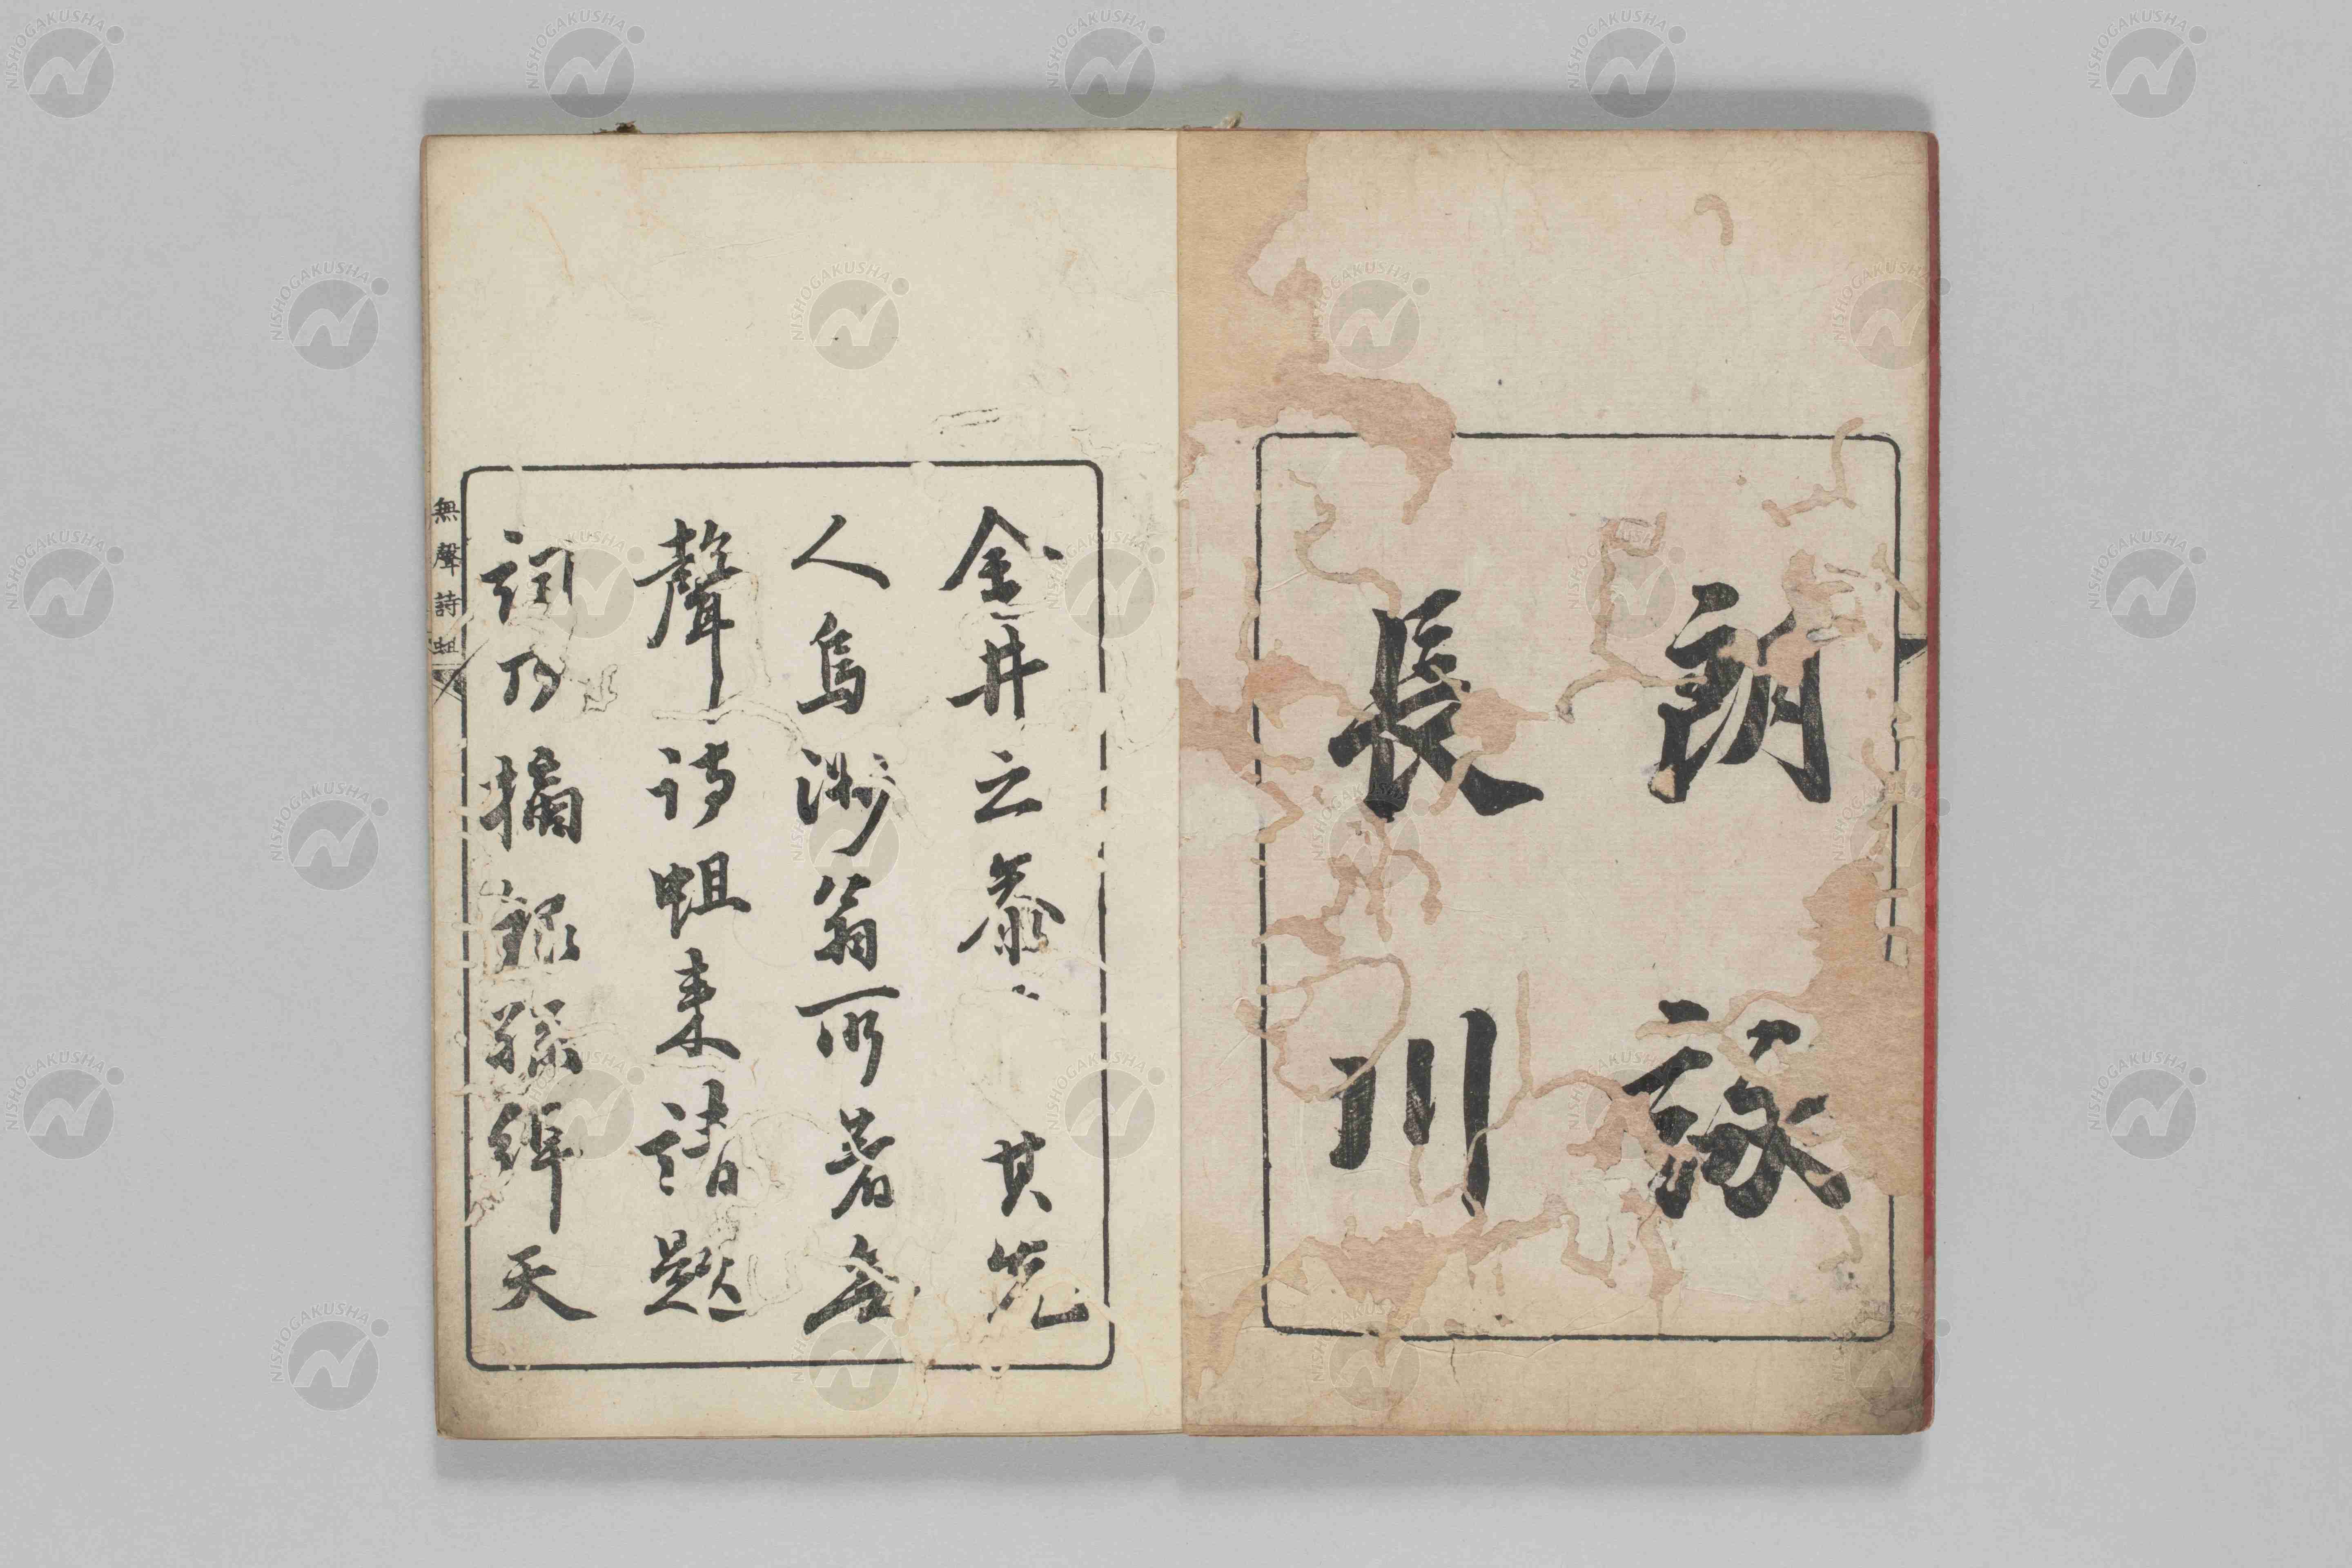 朗詠
長川
金井之恭 其先
人烏洲翁所著無
聲詩蛆来請題
詞乃摘録孫綽天
無聲詩蛆
NISHOGAKUSHA